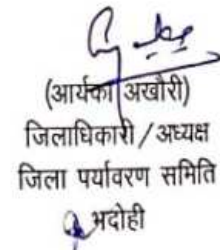 (आर्यका अखौरी)
जिलाधिकारी / अध्यक्ष
जिला पर्यावरण समिति
भदोही